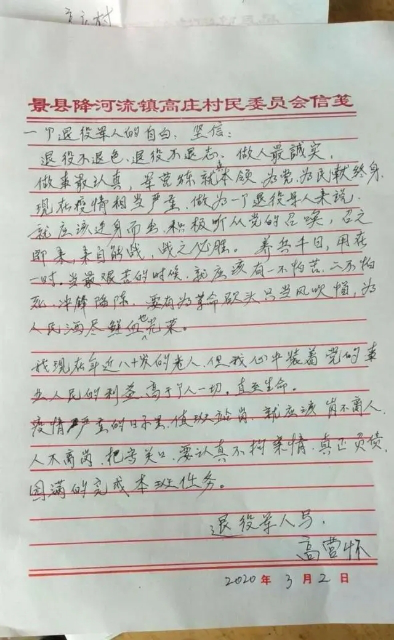 景县降河流镇高庄村民委员会信笺
一个退役军人的自白，坚信：
退役不退色，退役不退志，做人最誠实，
做事最认真，军营练就本领，为党，为民献终身，
现在疫情相当严重，做为一个退役军人来说，
就应该挺身而出，积极听从党的召唤，召之
即来，来自能战，战之必胜。养兵千日，用在
一时，当最艰苦的时候，就应该有一不怕苦，二不怕
死，冲锋陷阵，要有为革命砍头只当风吹帽，为
人民洒尽鲜血也光荣。
我现在年近八十岁的老人，但我心中装着党的事
业人民的利益高于个人一切，直至生命。
疫情严重的日子里，值班站岗，就应该岗不离人，
人不离岗，把守关口，要认真不拘亲情，真正负责，
园满的完成本班任务。
退役军人写，
高营怀
2020年3月2日